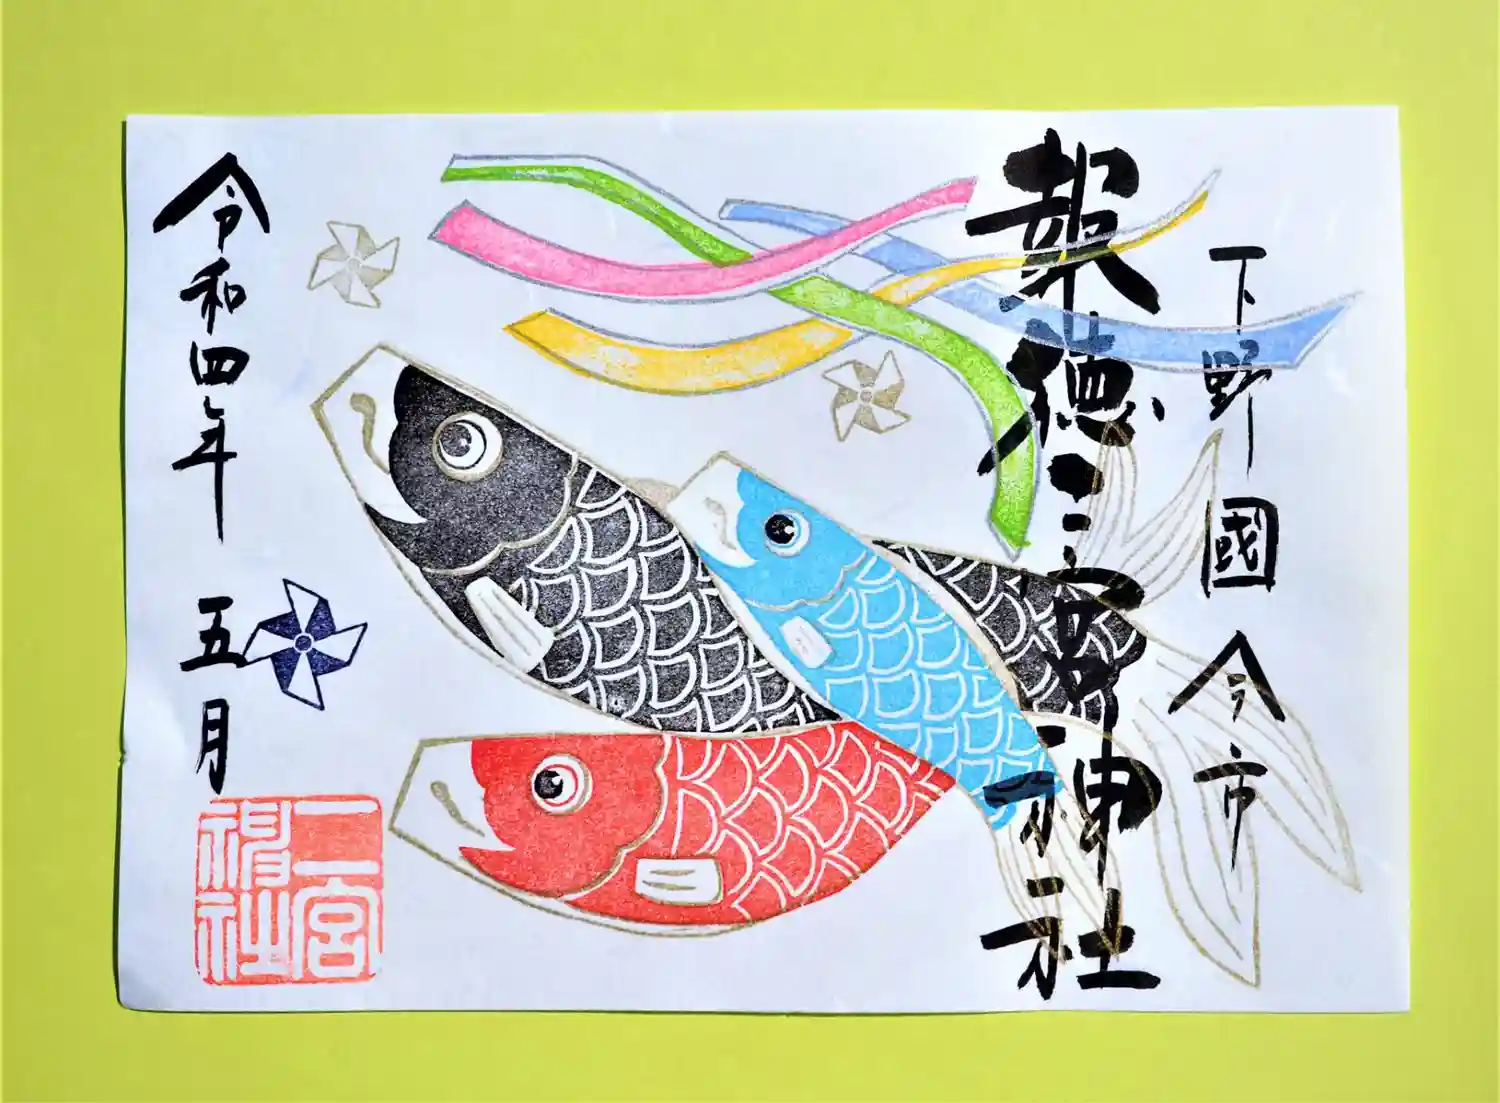 下野國 今市
報徳二宮神社
令和四年 五月
二宮
神社